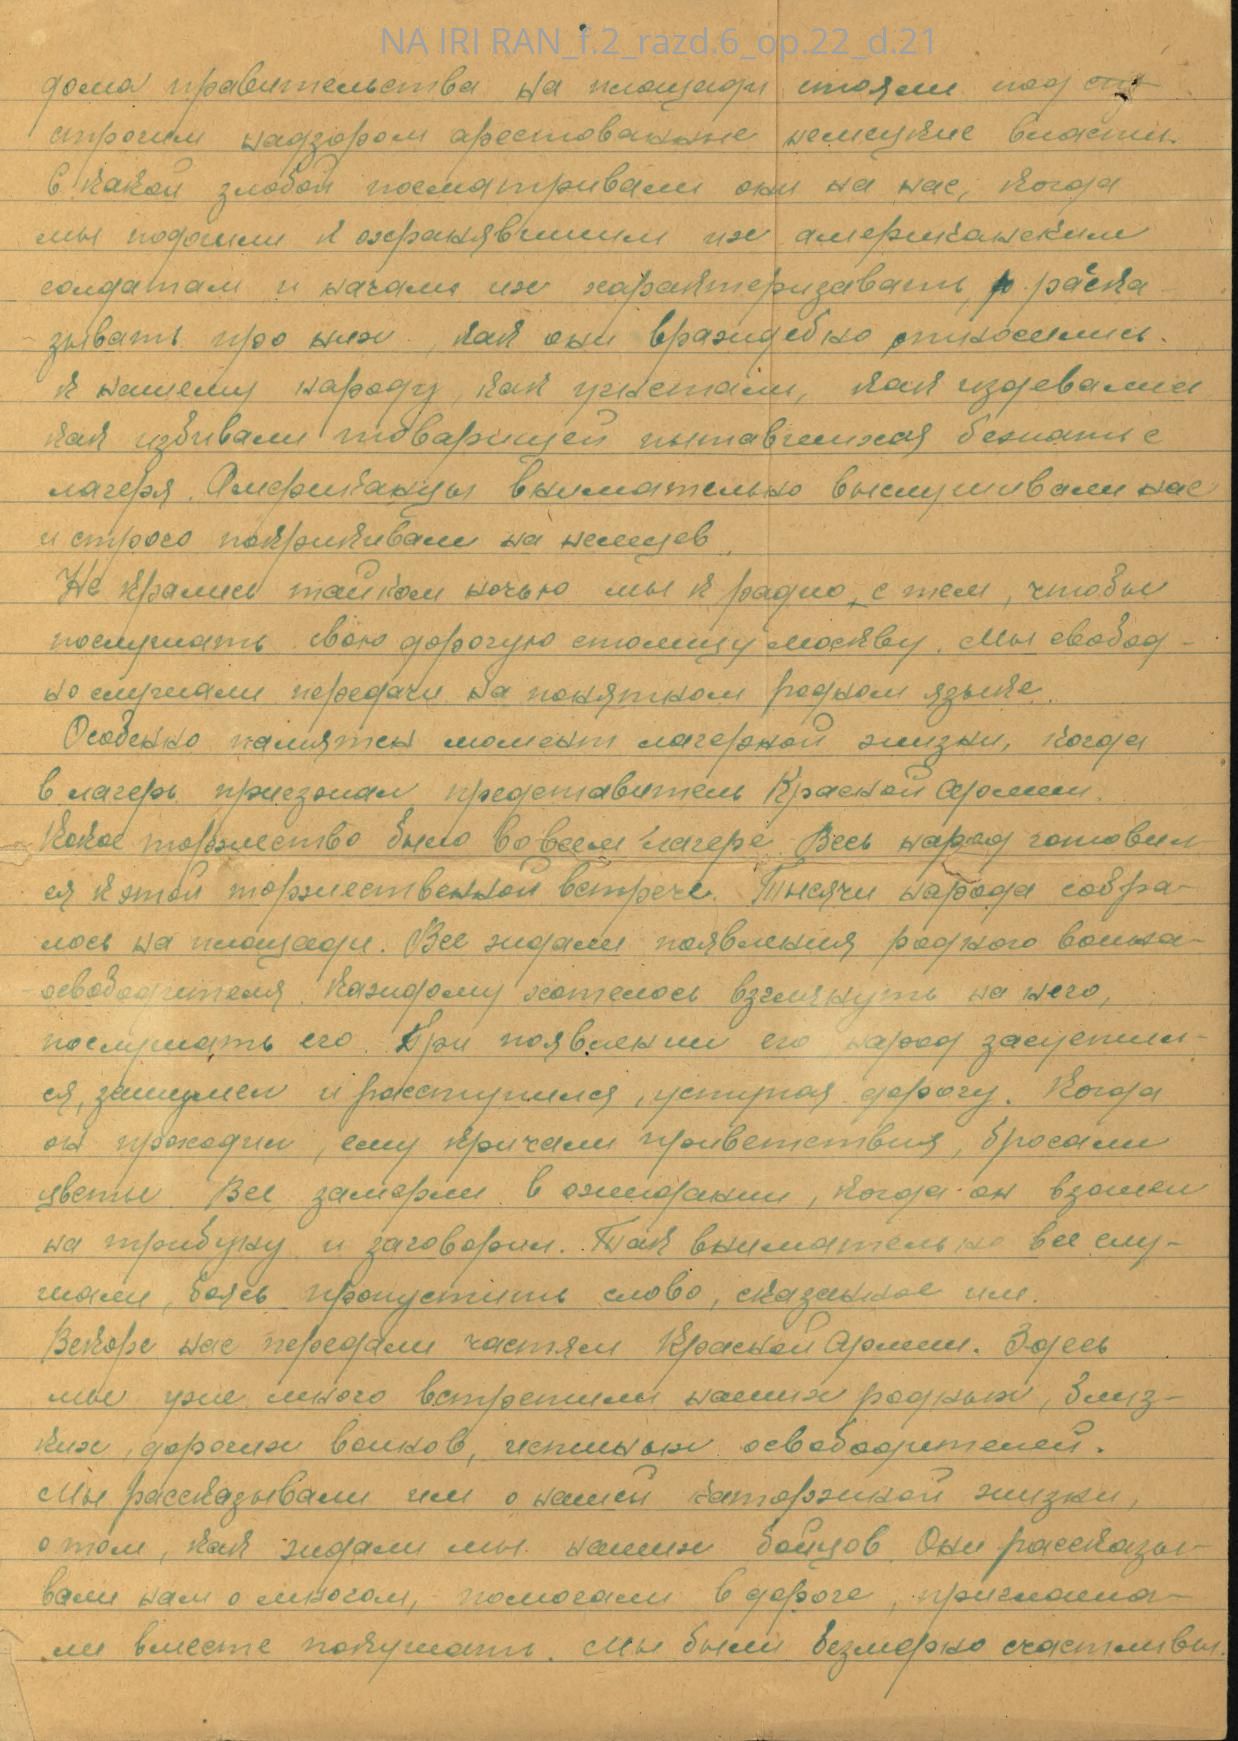 NA IRI RAN_f.2_razd.6_op.22_d.21
дома правительства на площади стояли под
строгим надзором арестованные немецкие власти.
С какой злобой посматривали они на нас, когда
мы подошли к охранявшим их американским
солдатам и начали их характеризавать, расска-
зывать про них, как они враждебно относились.
к нашему народу, как угнетали, как издевались
как избивали товарищей пытавшихся бежать с
лагеря. Американцы внимательно выслушивали нас
и строго покрикивали на немцев.
Не крались тайком ночью мы к радио, с тем, чтобы
послушать свою дорогую столицу Москву. Мы свобод-
но слушали передачи на понятном родном языке.
Особенно памятен момент лагерной жизни, когда
в лагерь приезжал представитель Красной Армии.
Какое торжество было во всем лагере. Весь народ готовил
ся к этой торжественной встрече. Тысячи народа собра-
лось на площади. Все ждали появления родного воина-
-освободителя. Каждому хотелось взглянуть на него,
послушать его. При появлении его, народ засуетил-
ся, зашумел и расступился, уступая дорогу. Когда
он проходил, ему кричали приветствия, бросали
цветы. Все замерли в ожидании, когда он взошел
на трибуну и заговорил. Так внимательно все слу-
шали, боясь пропустить слово, сказанное им.
Вскоре нас передали частям Красной Армии. Здесь
мы уже много встретили наших родных, близ-
ких, дорогих воинов, истинных освободителей.
Мы рассказывали им о нашей каторжной жизни,
о том, как ждали мы наших бойцов. Они рассказы-
вали нам о многом, помогали в дороге, приглаша-
ли вместе покушать. Мы были безмерно счастливы.